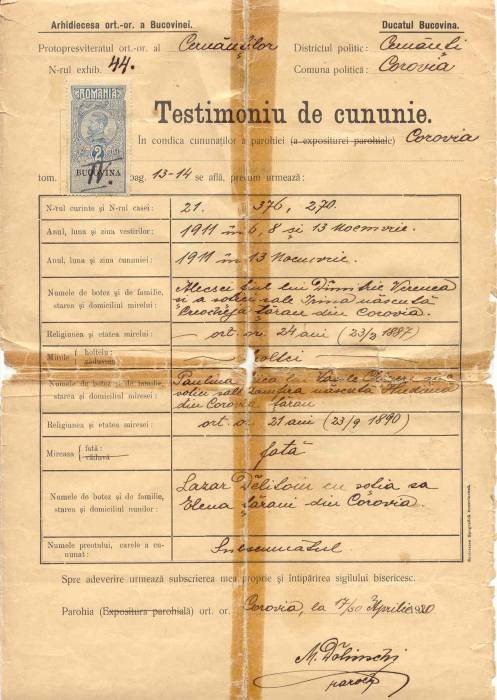 Arhidiecesa ort.-or. a Bucovinei.
Ducatul Bucovina.
Protopresviteratul ort.-or. al Cernăuților
Districtul politic: Cernăuți
N-rul exhib. 44.
Comuna politică: Corovia
ROMANIA
2
BUCOVINA
Testimoniu de cununie.
În condica cununaților a parohiei (a expositurei parohiale) Corovia
tom. IV. pag. 13-14 se află, precum urmează:
N-rul curinte și N-rul casei: 21. 376, 270.
Anul, luna și ziua vestirilor: 1911 în 6, 8 și 13 Noemvrie.
Anul, luna și ziua cununiei: 1911 în 13 Noemvrie.
Numele de botez și de familie, starea și domiciliul mirelui:
fiul lui Dimitrie
și a soției sale Irina născută
țărani din Corovia.
Religiunea și etatea mirelui: ort. or. 24 ani (23/3 1887)
Mirele { holteiu: văduvoiu holtei
Numele de botez și de familie, starea și domiciliul miresei:
Paulina fiica lui Vasile și a
soției sale Zamfira născută
din Corovia țărani
Religiunea și etatea miresei: ort. or. 21 ani (23/9 1890)
Mireasa { fată: văduvă fată
Numele de botez și de familie, starea și domiciliul nunilor:
Lazar cu soția sa
Elena țărani din Corovia.
Numele preotului, carele a cununat: Subscrisul
Spre adeverire urmează subscrierea mea proprie și întipărirea sigilului bisericesc.
Parohia (Expositura parohială) ort. or. Corovia, la 17/30 Aprilie 1920
M.
paroch